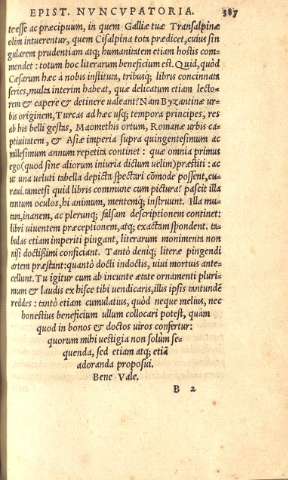 EPIST. NVNCVPATORIA. 387
te esse ac præcipuum, in quem Galliæ tuæ Transalpinæ
elim intuerentur, quem Cisalpina tota prædicet, cuius sin
gularem prudentiam atq; humanitatem etiam hostis com
mendet: totum hoc literarum beneficium est. Quid, quòd
Cæsarum hæc à nobis instituta, tribusq; libris concinnata
series, multæ interim habeat, quæ delicatum etiam lecto-
rem & capere & detinere ualeant? Nam Byzantinæ ur-
bis originem, Turcas ad hæc usq; tempora principes, res
ab his belli gestas, Maomethis ortum, Romanæ urbis ca-
ptiuitatem, & Asiæ imperia supra quingentesimum ac
millesimum annum repetita continet: quæ omnia primus
ego (quod sine aliorum iniuria dictum uelim) præstiti: ac
ut una ueluti tabella depicta spectari cōmode possent, cu-
raui. nimetsi quid libris commune cum pictura? pascit illa
animum oculos, hi animum, mentemq; instruunt. Illa mu-
tam, inanem, ac plerunq; falsam descriptionem continet:
libri uiuentem præceptionem, atq; exactam spondent. ta-
bulas etiam imperiti pingant, literarum monimenta non
nisi doctissimi conficiant. Tantò deniq; literæ pingendi
artem præstant: quantò docti indoctis, uiui mortuis ante-
cellunt. Tu igitur cum ab incunte ætate ornamenti pluri-
mum & laudis ex hisce tibi uendicaris, illis ipsis tantundē
reddes: tantò etiam cumulatius, quòd neque melius, nec
honestius beneficium ullum collocari potest, quàm
quod in bonos & doctos uiros confertur:
quorum mihi uestigia non solùm se-
quenda, sed etiam atq; etiā
adoranda proposui.
Bene Vale.
B 2